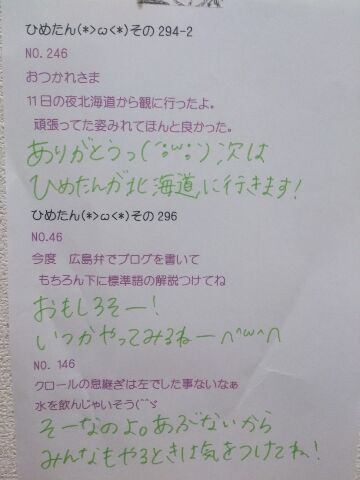 ひめたん(*>ω<*)その294-2
NO.246
おつかれさま
11日の夜北海道から観に行ったよ。
頑張ってた姿みれてほんと良かった。
ありがとうっ(´°ω°`)次は
ひめたんが北海道に行きます!
ひめたん(*>ω<*)その296
NO.46
今度 広島弁でブログを書いて
もちろん下に標準語の解説つけてね
おもしろそー!
いつかやってみるねー∩^ω^∩
NO. 146
クロールの息継ぎは左でした事ないなぁ
水を飲んじゃいそう(^^ゞ
そーなのよ。あぶないから
みんなもやるときは気をつけてね!